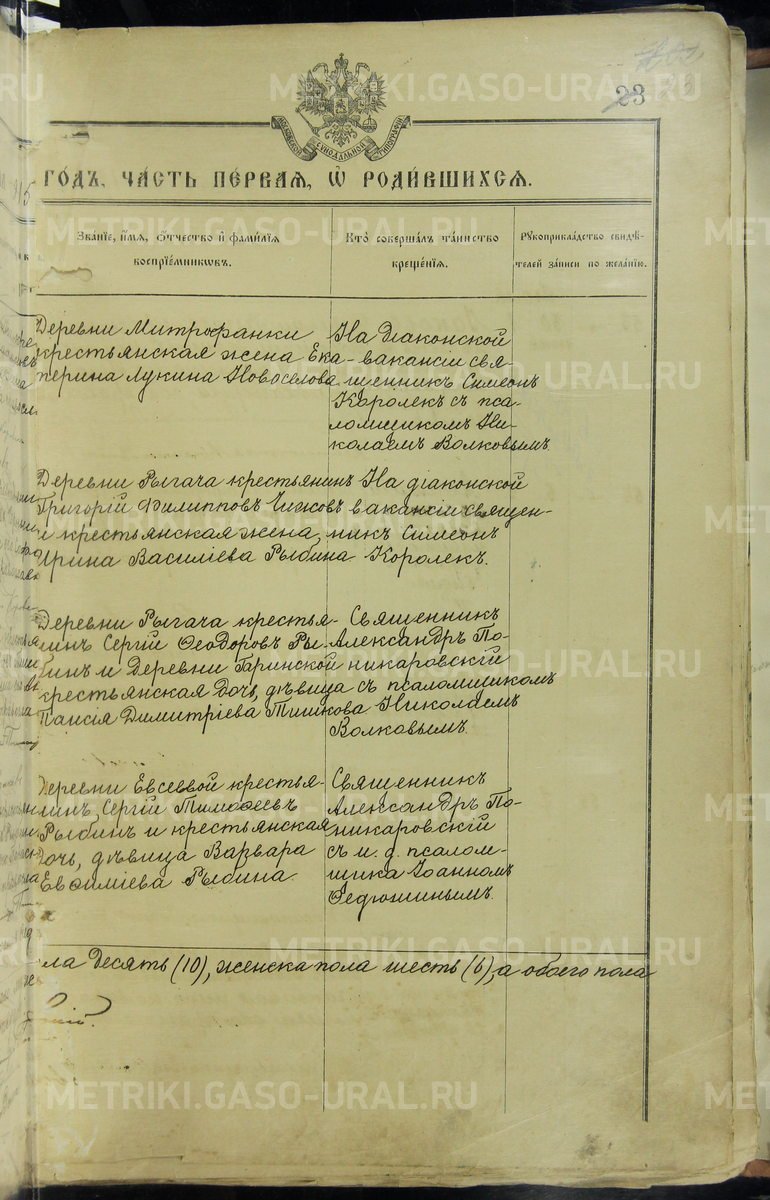 23
МОСКОВСКОЙ СѴНОДАЛЬНОЙ ТИПОГРАФІИ
ГО́ДЪ, ЧА́СТЬ ПЕ́РВАЯ, Ѡ҆ РОДИ́ВШИХСЯ.
Зва́нїе, и҆́мѧ, ѻ҆́тчество и҆ фами́лїѧ
воспрїе́мникѡвъ.
Кто̀ соверша́лъ та́инство
креще́нїѧ.
Рꙋкоприкла́дство свидѣ́-
телей за́писи по жела́нїю.
Деревни Митрофанки
крестьянская жена Ека-
терина Лукина Новоселова
На діаконской
вакансіи свя-
щенникъ Симеонъ
Королекъ съ пса-
ломщикомъ Ни-
колаемъ Волковымъ.
Деревни Рыгача крестьянинъ
Григорій Филипповъ Чижовъ
и крестьянская жена,
Ирина Василіева Рыбина
На діаконской
вакансіи священ-
никъ Симеонъ
Королекъ.
Деревни Рыгача крестья-
нинъ Сергій Ѳеодоровъ Ры-
бинъ и Деревни Гаринской
крестьянская дочь, дѣвица
Паисія Димитріева Тишкова
Священникъ
Александръ По-
никаровскій
съ псаломщикомъ
Николаемъ
Волковымъ.
Деревни Евсѣевой крестья-
нинъ, Сергій Тимоѳеевъ
Рыбинъ и крестьянская
дочь, дѣвица Варвара
Евѳиміева Рыбина
Священникъ
Александръ По-
никаровскій
съ и. д. псалом-
щика Іоанномъ
Ѳедюшинымъ.
ла десять (10), женска пола шесть (6), а обоего пола
METRIKI.GASO-URAL.RU
METRIKI.GASO-URAL.RU
METRIKI.GASO-URAL.RU
METRIKI.GASO-URAL.RU
METRIKI.GASO-URAL.RU
METRIKI.GASO-URAL.RU
METRIKI.GASO-URAL.RU
METRIKI.GASO-URAL.RU